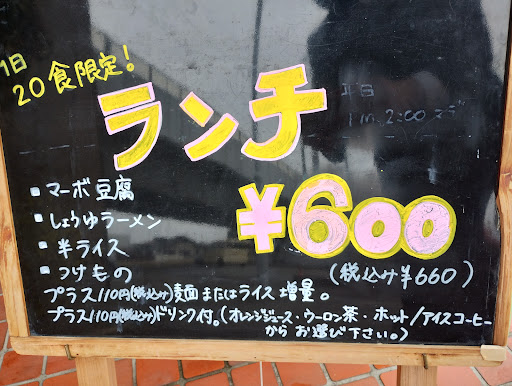 1日
20食限定!
ランチ
平日
2:00まで
▪マーボ豆腐
▪しょうゆラーメン
▪半ライス
▪つけもの
¥600
(税込み¥660)
プラス110円(税込み)麺またはライス増量。
プラス110円(税込み)ドリンク付。(オレンジジュース・ウーロン茶・ホット/アイスコーヒー
からお選び下さい。)